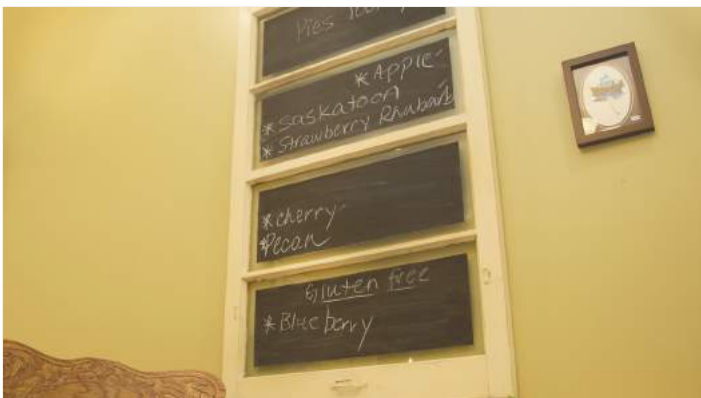 Pies
*Apple
*Saskatoon
*Strawberry Rhubarb
*cherry
*Pecan
Gluten free
*Blueberry